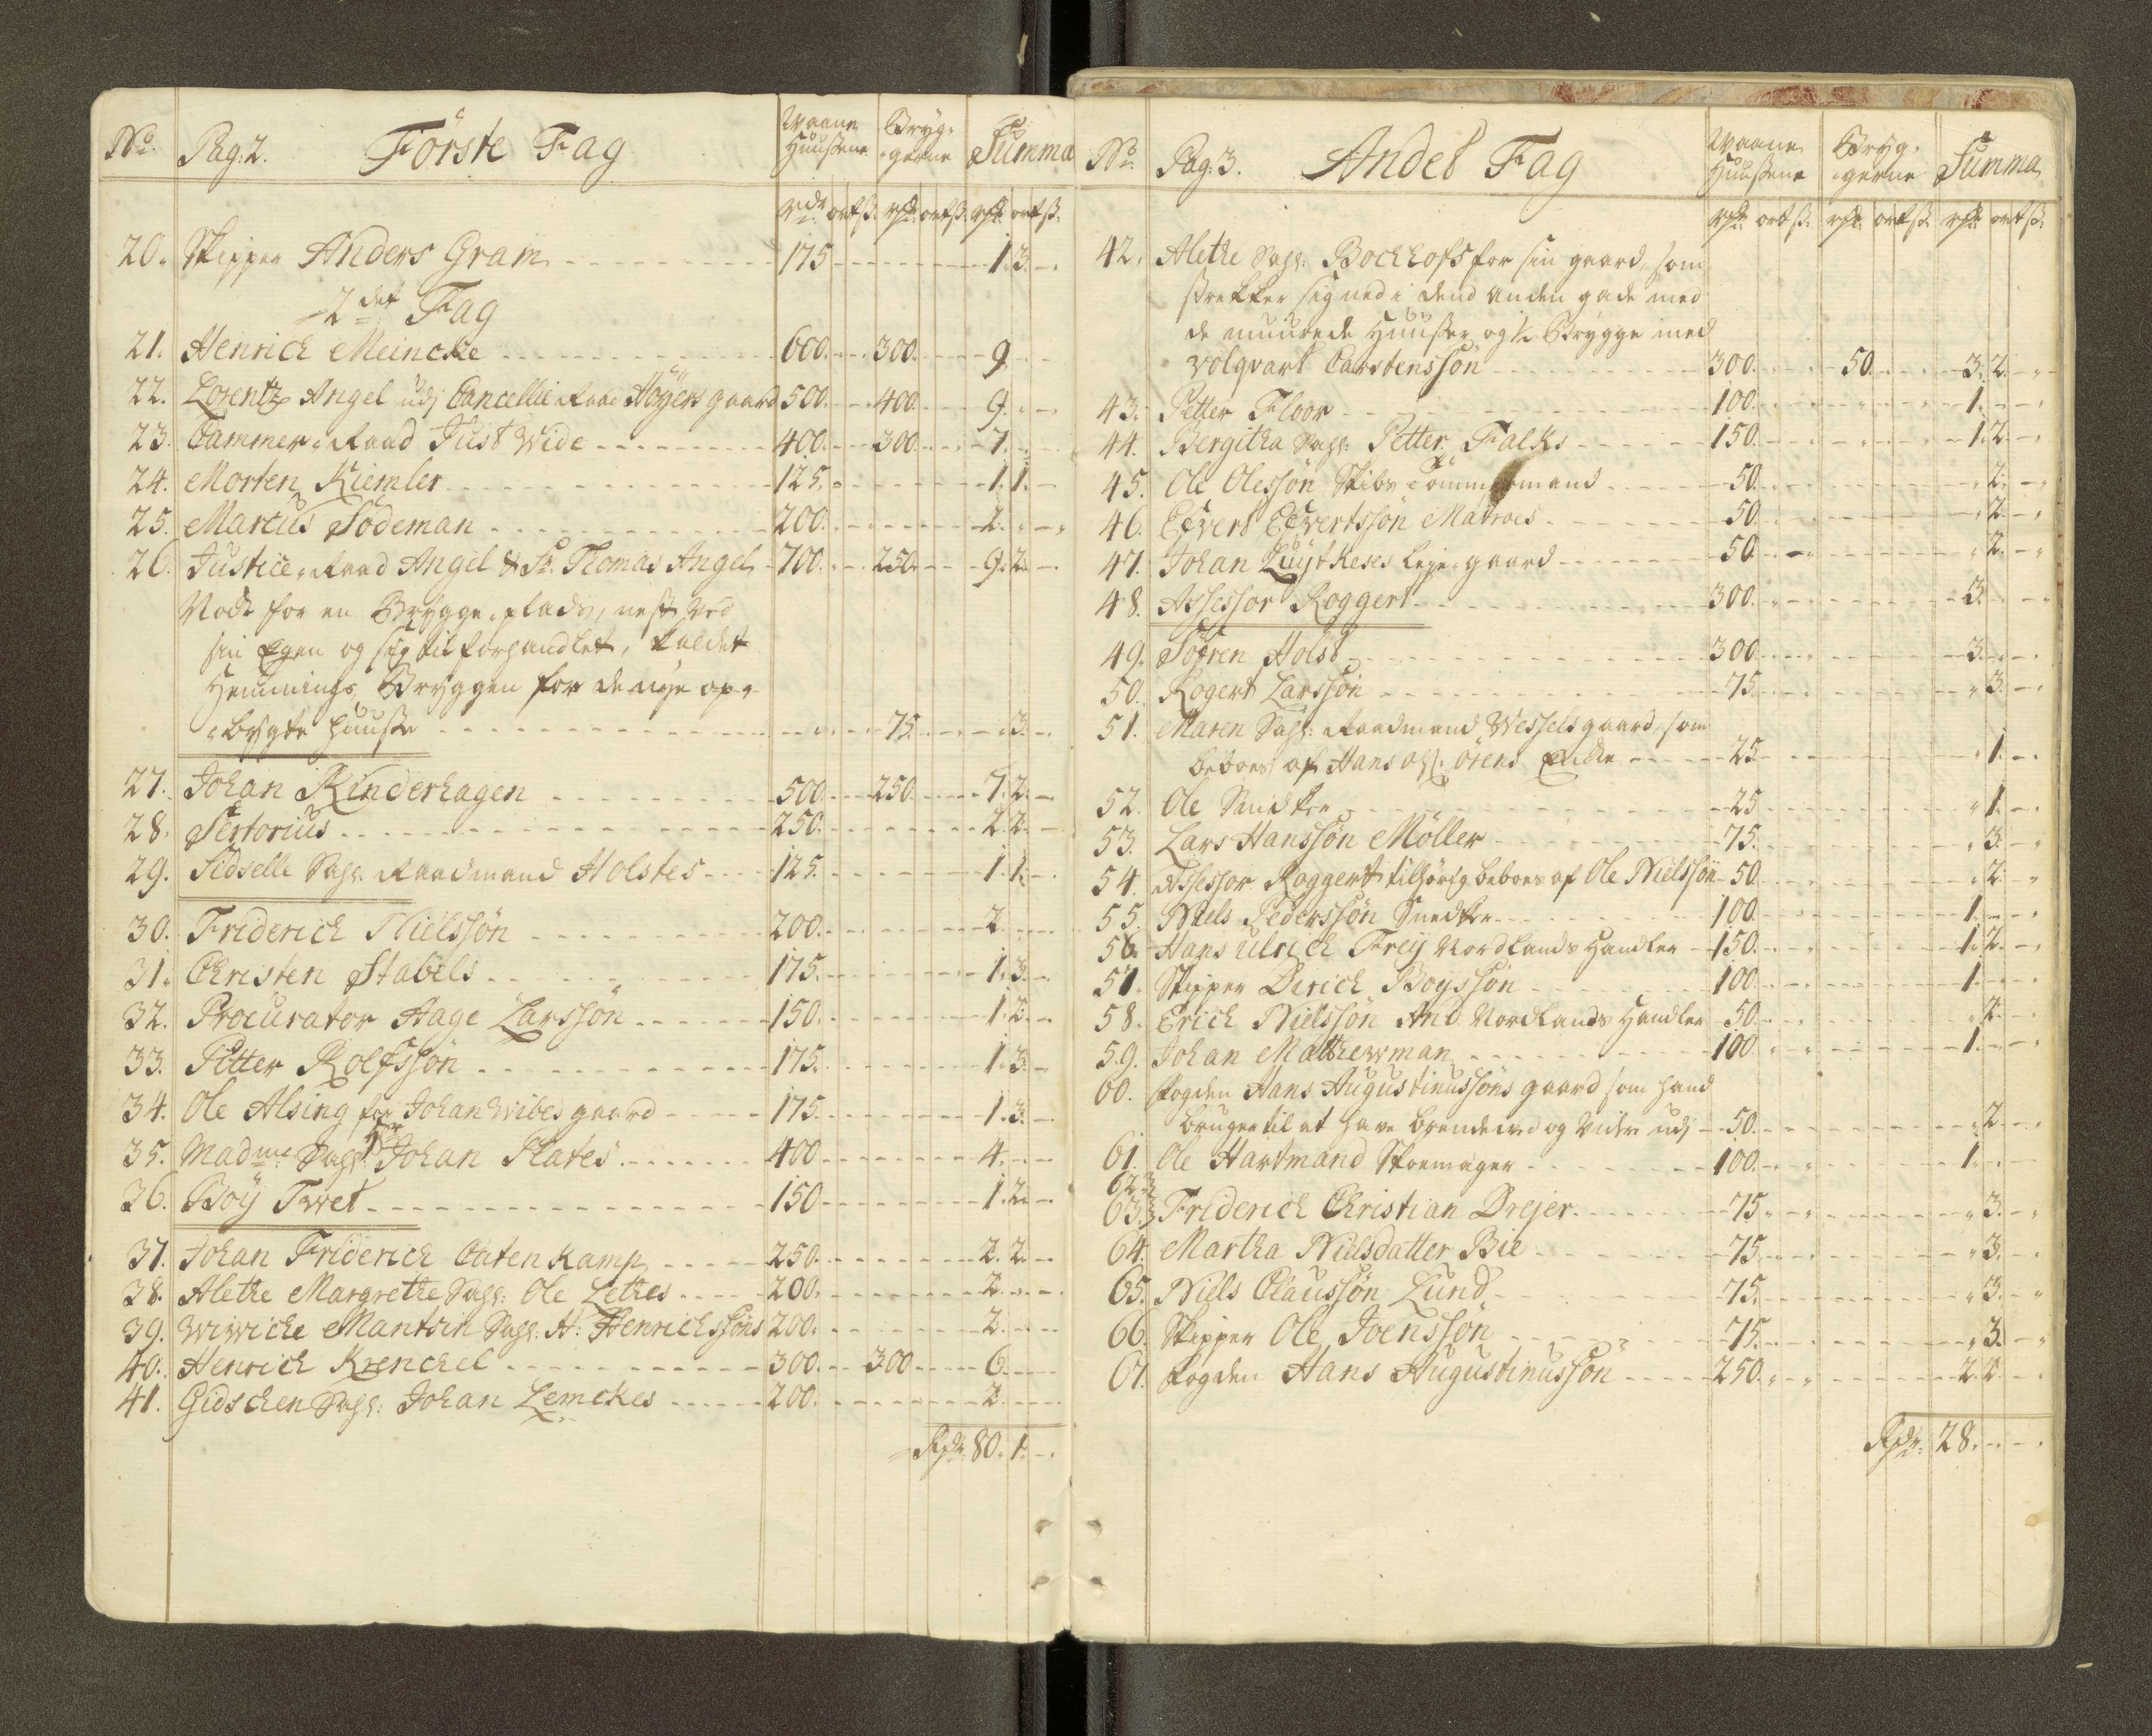 No. Pag: 2. Förste Fag Waane Huußene Bryg- gerne Summa
rdr ort ß. rdr. ort ß. rdr. ort ß.
20. Skipper Anders Gram 175 1. 3. -
2det Fag
21. Henrich Meincke 600. 300. 9.
22. Lorentz Angel udj Cancellie Raad Höyers gaard 500. 400. 9. -
23. Cammer-Raad Just Wide 400. 300. 7. -
24. Morten Kiemler 125. 1. 1. -
25. Marcus Södeman 200. 2. -
26. Justice-Raad Angel & Sr. Thomas Angel 700. 250. 9. 2. -
Nock for en Brygge-plads, nest ved
sin Egen og sig tilforhandlet, kaldet
Hennings Bryggen for de nye op-
bygte huuse 75. 3. -
27. Johan Kinderhagen 500. 250. 7. 2. -
28. Sertorius 250. 2. 2. -
29. Sidselle Sahl. Raadmand Holstes 125. 1. 1. -
30. Friderich Nielssön 200. 2.
31. Christen Stabels 175. 1. 3. -
32. Procurator Aage Larssön 150. 1. 2. -
33. Petter Rolfssön 175. 1. 3. -
34. Ole Alsing for Johan Wibes gaard 175. 1. 3. -
35. Madme Sahl. Hr Johan Plates 400 4. -
36. Boÿ Twet 150 1. 2. -
37. Johan Friderich Caten Kamp 250. 2. 2. -
38. Alethe Margrethe Sahl: Ole Lethes 200. 2. -
39. Wiwicke Mantzin Sahl: H: Henrichssöns 200. 2. -
40. Henrich Krenckel 300. 300 6. -
41. Gidschen Sahl: Johan Lemckes 200. 2. -
Rdr. 80. 1. -
No. Pag: 3. Andet Fag Waane Huußene Bryg- gerne Summa
rdr. ort ß. rdr. ort ß. rdr. ort ß.
42. Alethe Sahl: Bockhofs for sin gaard, som
strekker sig ned i dend anden gade med
de muurede Huußer og ½ Brygge med
Volqvart Carstenssön 300. 50. 3. 2. -
43. Petter Floor 100. 1. -
44. Bergitha Sahl: Petter Falks 150. 1. 2. -
45. Ole Olessön Skibs Tömmermand 50. 2. -
46. Efvert Efvertssön Matroes 50. 2. -
47. Johan Luytkeses leye-gaard 50. 2. -
48. Assessor Roggert 300. 3. -
49. Söfren Holst 300. 3. -
50. Rogert Larssön 75. 3. -
51. Maren Sahl: Raadmand Wessels gaard, som
beboes af Hans Örens Encke 25 1. -
52. Ole Snidker 25 1. -
53. Lars Hanssön Möller 75. 3. -
54. Assessor Roggert tilhörig beboes af Ole Nielssön 50 2. -
55. Niels Pederssön Snedker 100 1. -
56. Hans Ulrich Freÿ Nordlands Handler 150. 1. 2. -
57. Skipper Dirich Boyssön 100. 1. -
58. Erich Nielssön And. Nordlands Handler 50. 2. -
59. Johan Matthewman 100 1. -
60. Fogden Hans Augustinussöns gaard som hand
bruger til at have brendeved og Vider udj 50. 2. -
61. Ole Hartmand Skoemager 100. 1. -
62.
63. Friderich Christian Drejer 75 3. -
64. Martha Nielsdatter Bie 75. 3. -
65. Niels Claussön Lund 75. 3. -
66. Skipper Ole Joenssön 75. 3. -
67. Fogden Hans Augustinussön 250. 2. 2. -
Rdr. 28. -